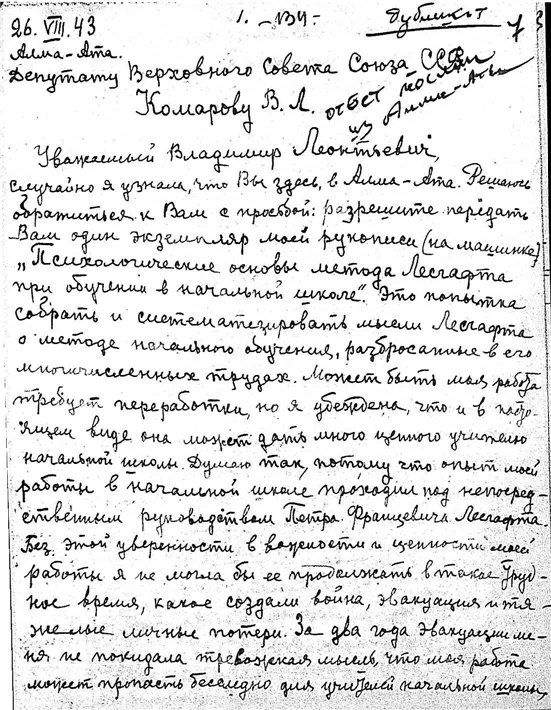 26. VIII. 43
1. -134-
Дубликат
Алма-Ата.
Депутату Верховного Совета Союза ССР
Комарову В. Л.
ответ послан
из Алма-Аты
Уважаемый Владимир Леонтьевич,
случайно я узнала, что Вы здесь, в Алма-Ата. Решаюсь
обратиться к Вам с просьбой: разрешите передать
Вам один экземпляр моей рукописи (на машинке)
„Психологические основы метода Лесгафта
при обучении в начальной школе". Это попытка
собрать и систематезировать мысли Лесгафта
о методе начального обучения, разбросанные в его
многочисленных трудах. Может быть моя работа
требует переработки, но я убеждена, что и в насто-
ящем виде она может дать много ценного учителю
начальной школы. Думаю так, потому что опыт моей
работы в начальной школе проходил под непосред-
ственным руководством Петра Францевича Лесгафта.
Без этой уверенности в важности и ценности моей
работы я не могла бы ее продолжать в такое труд-
ное время, какое создали война, эвакуация и тя-
желые личные потери. За два года эвакуации ме-
ня не покидала тревожная мысль, что моя работа
может пропасть бесследно для учителей начальной школы,